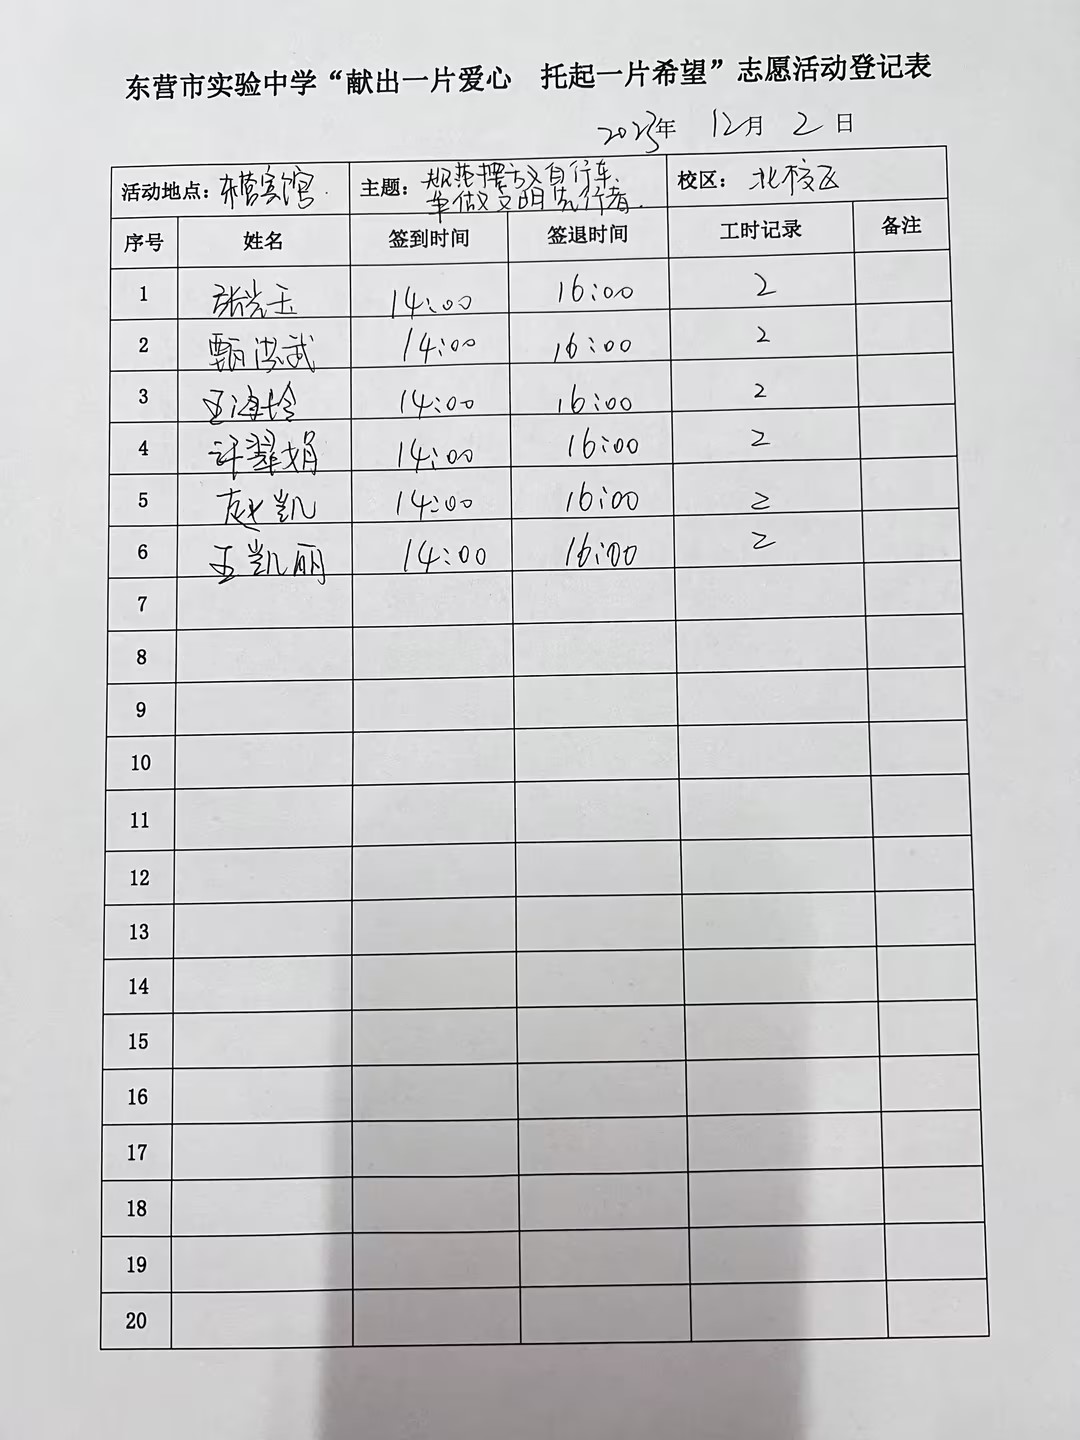 东营市实验中学“献出一片爱心 托起一片希望”志愿活动登记表
2023年 12月 2日
活动地点：东营宾馆. 主题：规范摆放自行车、 校区：北校区
争做文明先行者.
序号 姓名 签到时间 签退时间 工时记录 备注
1 张光玉 14:00 16:00 2
2 甄洪武 14:00 16:00 2
3 王海玲 14:00 16:00 2
4 许翠娟 14:00 16:00 2
5 赵凯 14:00 16:00 2
6 王凯丽 14:00 16:00 2
7
8
9
10
11
12
13
14
15
16
17
18
19
20